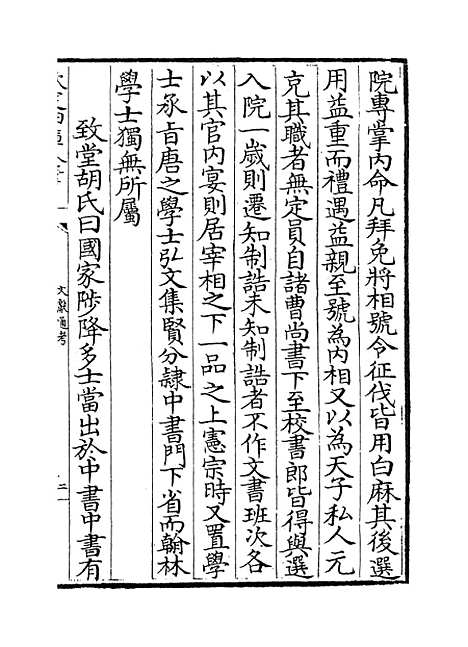 院專掌内命凡拜免將相號令征伐皆用白麻其後選
用益重而禮遇益親至號為内相又以為天子私人元
克其職者無定員自諸曹尚書下至校書郎皆得與選
入院一歲則遷知制誥未知制誥者不作文書班次各
以其官内宴則居宰相之下一品之上憲宗時又置學
士承㫖唐之學士弘文集賢分隸中書門下省而翰林
學士獨無所屬
致堂胡氏曰國家陟降多士當出於中書中書有
文獻通考